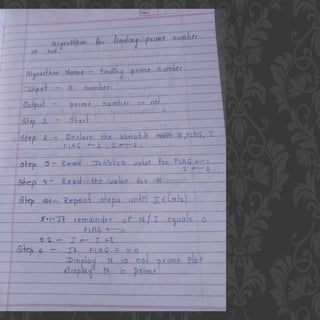 Algorithm for finding prime number
or not.
Algorithm Name - Finding prime number
Input - A number
Output - prime number or not
Step 1 - Start
Step 2 - Declare the variable N, FLAG, I
FLAG ← 1, I ← 2.
Step 3 - Read Initialize value for FLAG ← 1
I ← 2
Step 4 - Read the value for N
Step 5 - Repeat steps until I<(N/2)
5.1 - If remainder of N/I equals 0
FLAG ← 0
5.2 - I ← I+1
Step 6 - If FLAG == 0
Display N is not prime else
Display N is prime